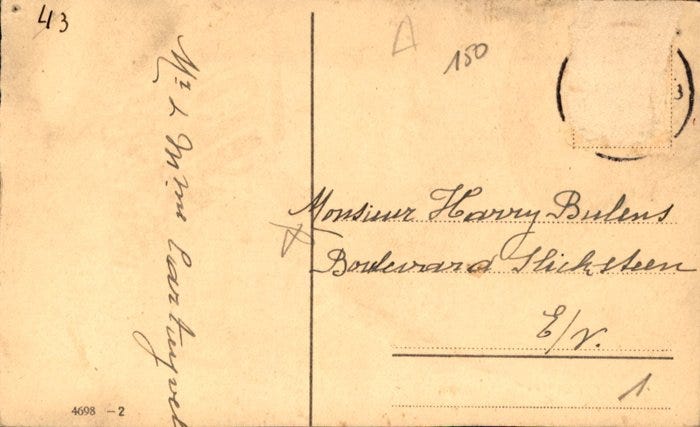 43
150
3
Mr & Mme Cartuyvel
Monsieur Harry Bulens
Boulevard Slicksteen
E/V.
1
4698 - 2